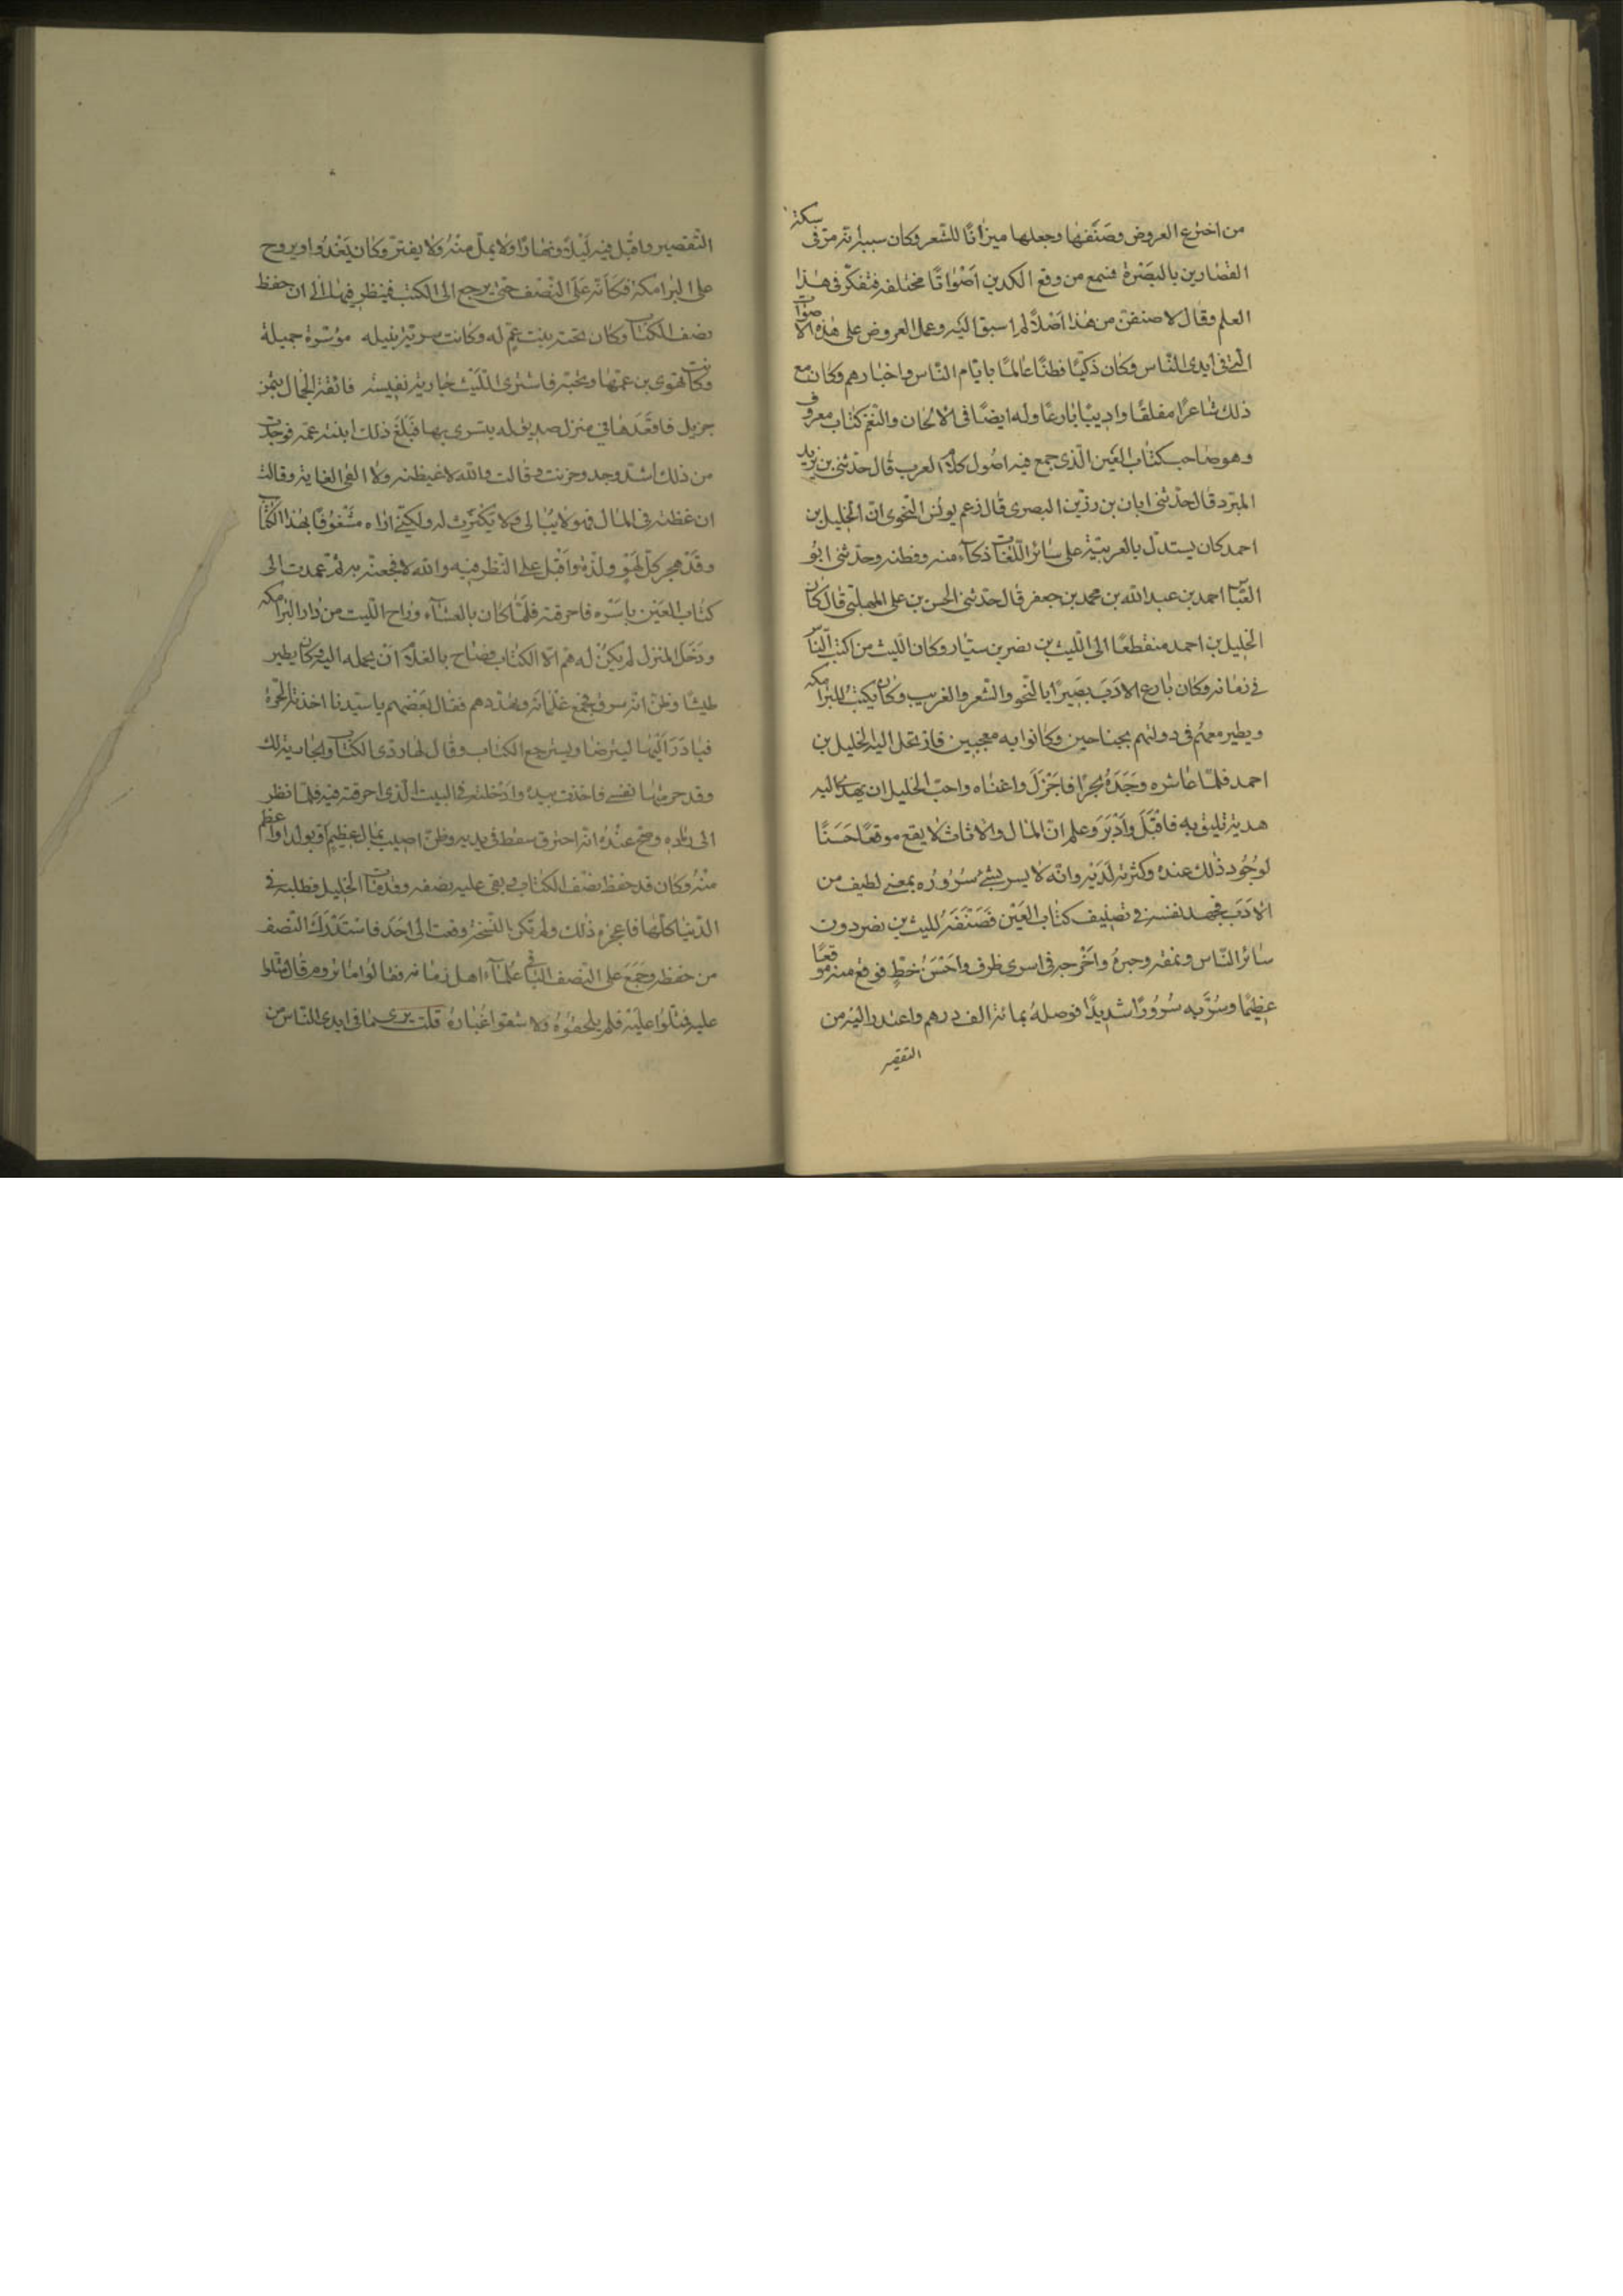 من اخترع العروض وصنّفها وجعلها ميزانًا للشعر وكان سببه انّه مرّ فى سكّة
القصّارين بالبصرة فسمع من وقع الكدين اصواتًا مختلفه فتفكّر فى هذا
العلم وقال لاصنفنّ من هذا اصلاً لم اسبق اليه وعمل العروض على هذه الاصوات
الّتى فى ايدى النّاس وكان ذكيّا فطنًا عالمًا بايّام النّاس واخبارهم وكان مع
ذلك شاعرًا مفلقًا واديبًا بارعًا وله ايضًا فى الالحان والنّغم كتاب معروف
وهو صاحب كتاب العين الّذى جمع فيه اصول كلام العرب قال حدّثنى بن يزيد
المبرّد قال حدّثنى ابان بن رزين البصرى قال زعم يونس النّحوى انّ الخليل بن
احمد كان يستدلّ بالعربيّة على سائر اللّغات ذكآء منه وفطنه وحدّثنى ابو
العبّاس احمد بن عبد الله بن محمد بن جعفر قال حدّثنى الحسن بن على المهلّبى قال كان
الخليل بن احمد منقطعًا الى اللّيث بن نصر بن سيّار وكان اللّيث من اكتب النّاس
فى زمانه وكان بارع الادب بصيرًا بالنّحو والشّعر والغريب وكان يكتب للبرامكه
ويطير معهم فى دولتهم بجناحين وكانوا به معجبين فارتحل اليه الخليل بن
احمد فلمّا عاشره وجده بحرًا فاجزل واغناه واحبّ الخليل ان يهدى اليه
هديّة تليق به فاقبل وادبر وعلم انّ المال والاثاث لا يقع موقعًا حسنًا
لوجود ذلك عنده وكثرته لديه وانّه لا يسر بشئ سروره بمعنى لطيف من
الادب فجهد نفسه فى تصنيف كتاب العين فصنّفه لليث بن نصر دون
سائر النّاس ونمقه وحبره واخرجه فى اسرى ظرف واحسن خطّ فوقع منه موقعًا
عظيمًا وسرّ به سرورًا شديدًا فوصله بمائة الف درهم واعتذر اليه من
التقصير
التّقصير واقبل فيه ليلاً ونهارًا ولا يملّ منه ولا يفترّ وكان يغدوا ويروح
على البرامكه فكانّه على النّصف حتى يرجع الى الكتب فينظر فيها الى ان حفظ
نصف الكتاب وكان تحته بنت عمّ له وكانت سريّة نبيله موسرة جميلة
وكانت تهوى بن عمّها وتحبّه فاشترى اللّيث جارية نفيسه فائقة الجمال بثمن
جزيل فاقعدها فى منزل صديق له يتسرى بها فبلغ ذلك ابنة عمّه فوجدت
من ذلك اشدّ وجد وحزنت وقالت والله لاغيظنه ولا القى الغاية وقالت
ان غظته فى المال فهو لا يبالى ولا يكترث له ولكنّى اراه مشغوفًا بهذا الكتاب
وقد هجر كلّ لهو ولذّة واقبل على النّظر فيه والله لافجعنّه به ثمّ عمدت الى
كتاب العين باسره فاحرقته فلمّا كان بالعشآء وراح اللّيث من دار البرامكه
ودخل المنزل لم يكن له همّ الا الكتاب فصاح بالغلام ان يحمله اليه فكان يطير
طيشًا وظنّ انّه سرق فجمع غلمانه وتهدّدهم فقال بعضهم يا سيّدنا اخذته الحرّة
فبادر اليها ليترضا ويسترجع الكتاب وقال لها ردّى الكتاب والجارية لك
وقد حرمتها نفسى فاخذت بيده وادخلته فى البيت الّذى احرقته فيه فلمّا نظر
الى رماده وصحّ عنده انّه احترق سقط فى يديه وظنّ اصيب بمال عظيم او بولد او اعظم
منه وكان قد حفظ نصف الكتاب وبقى عليه نصفه وقد مات الخليل فطلبه فى
الدّنيا كلّها فاعجزه ذلك ولم تكن النّسخة وقعت الى احد فاستدرك النّصف
من حفظه وجمع على النّصف الثّانى علمآء اهل زمانه فقالوا ما نروم قال مثلوا
عليه فمثلوا عليه فلم يلحقوه ولا شقوا غباره قلت يرى ما فى ايدى النّاس من